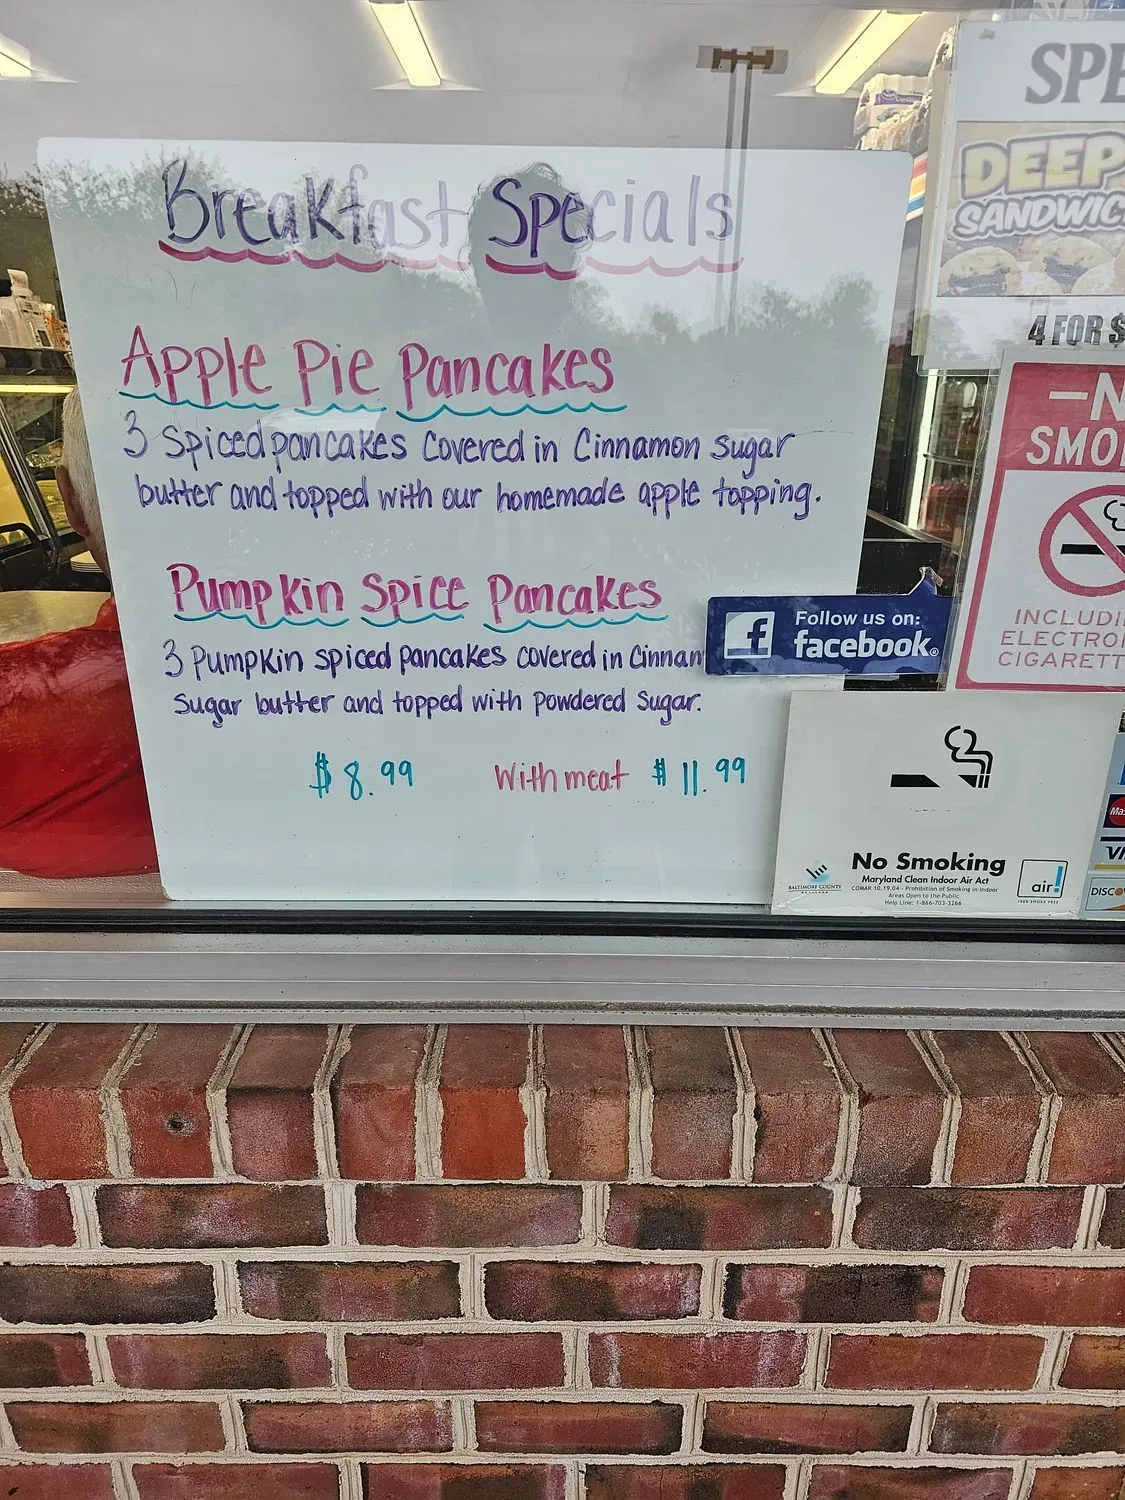 Breakfast Specials
Apple Pie Pancakes
3 Spiced pancakes Covered in Cinnamon sugar
butter and topped with our homemade apple topping.
Pumpkin Spice Pancakes
3 Pumpkin spiced pancakes covered in Cinnam
Sugar butter and topped with Powdered Sugar.
$8.99 With meat $11.99
Follow us on:
facebook®
SPE
DEEP
SANDWIC
4 FOR $
-N
SMO
INCLUDI
ELECTRO
CIGARETT
No Smoking
Maryland Clean Indoor Air Act
COMAR 10.19.04 - Prohibition of Smoking in Indoor
Areas Open to the Public
Help Line: 1-866-703-3266
BALTIMORE COUNTY
air!
100% SMOKE FREE
Mas
VI
DISCO